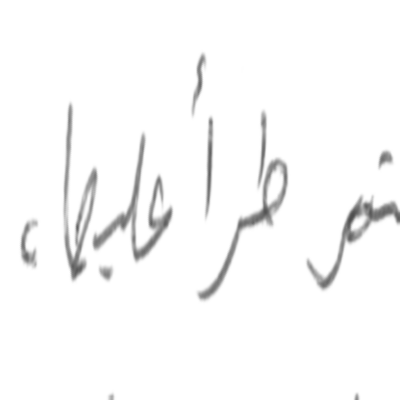 ثم طرأ عليها،